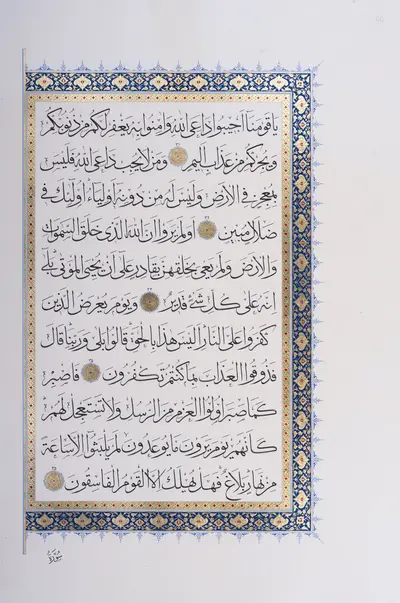 يا قومنا أجيبوا داعي الله وآمنوا به يغفر لكم من ذنوبكم
ويجركم من عذاب أليم ومن لا يجب داعي الله فليس
بمعجز في الأرض وليس له من دونه أولياء أولئك في
ضلال مبين أولم يروا أن الله الذي خلق السموات
والأرض ولم يعي بخلقهن بقادر على أن يحيي الموتى بلى
إنه على كل شيء قدير ويوم يعرض الذين
كفروا على النار أليس هذا بالحق قالوا بلى وربنا قال
فذوقوا العذاب بما كنتم تكفرون فاصبر
كما صبر أولوا العزم من الرسل ولا تستعجل لهم
كأنهم يوم يرون ما يوعدون لم يلبثوا إلا ساعة
من نهار بلاغ فهل يهلك إلا القوم الفاسقون
سورة